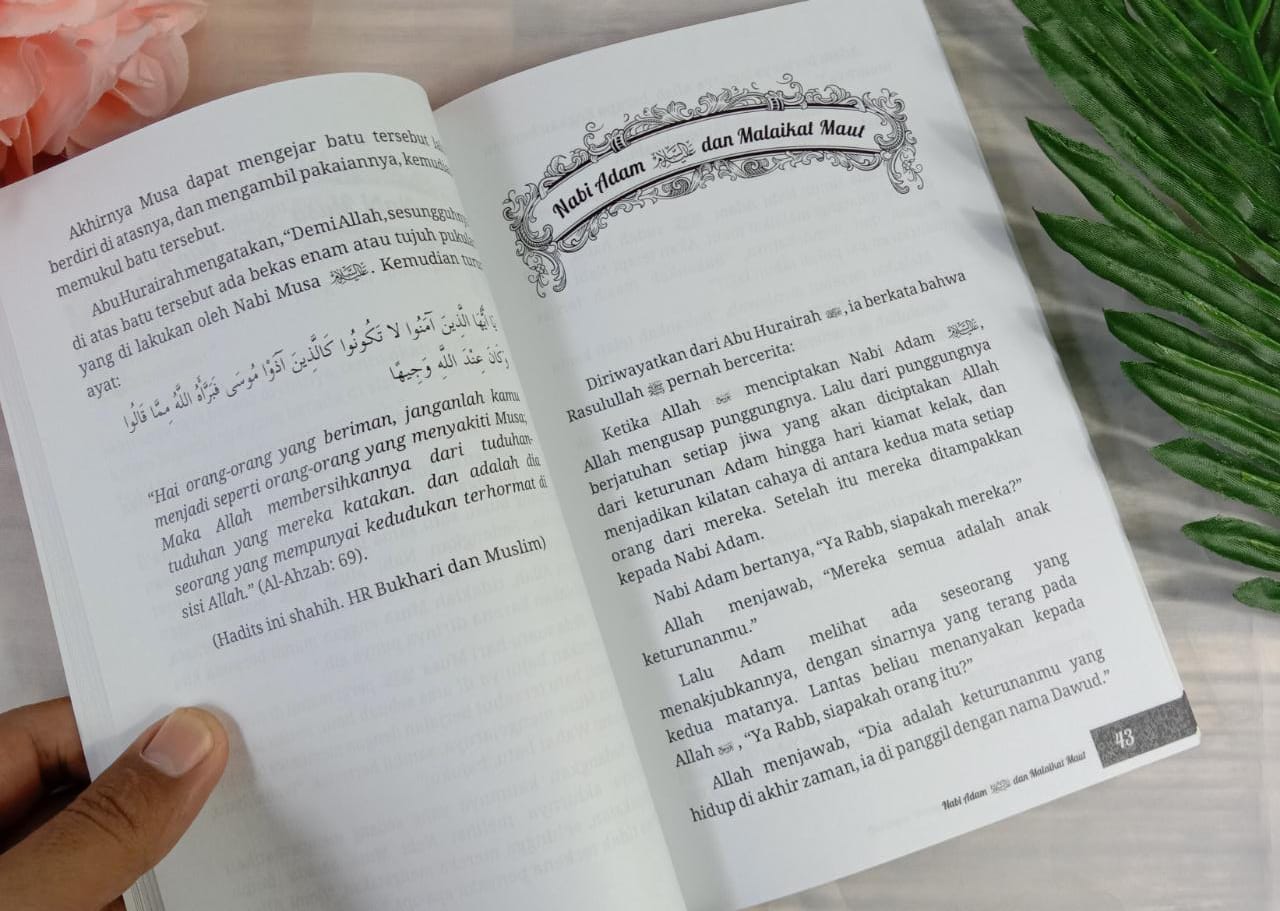 Akhirnya Musa dapat mengejar batu tersebut
berdiri di atasnya, dan mengambil pakaiannya, kemudian
memukul batu tersebut.
Abu Hurairah mengatakan, “Demi Allah, sesungguhnya
di atas batu tersebut ada bekas enam atau tujuh pukulan
yang di lakukan oleh Nabi Musa عليه السلام. Kemudian turun
ayat:
يَا أَيُّهَا الَّذِينَ آمَنُوا لَا تَكُونُوا كَالَّذِينَ آذَوْا مُوسَى فَبَرَّأَهُ اللَّهُ مِمَّا قَالُوا
وَكَانَ عِنْدَ اللَّهِ وَجِيهًا
“Hai orang-orang yang beriman, janganlah kamu
menjadi seperti orang-orang yang menyakiti Musa;
Maka Allah membersihkannya dari tuduhan-
tuduhan yang mereka katakan. dan adalah dia
seorang yang mempunyai kedudukan terhormat di
sisi Allah.” (Al-Ahzab: 69).
(Hadits ini shahih. HR Bukhari dan Muslim)
Nabi Adam عليه السلام dan Malaikat Maut
Diriwayatkan dari Abu Hurairah, ia berkata bahwa
Rasulullah ﷺ pernah bercerita:
Ketika Allah menciptakan Nabi Adam عليه السلام,
Allah mengusap punggungnya. Lalu dari punggungnya
berjatuhan setiap jiwa yang akan diciptakan Allah
dari keturunan Adam hingga hari kiamat kelak, dan
menjadikan kilatan cahaya di antara kedua mata setiap
orang dari mereka. Setelah itu mereka ditampakkan
kepada Nabi Adam.
Nabi Adam bertanya, “Ya Rabb, siapakah mereka?”
Allah menjawab, “Mereka semua adalah anak
keturunanmu.”
Lalu Adam melihat ada seseorang yang
menakjubkannya, dengan sinarnya yang terang pada
kedua matanya. Lantas beliau menanyakan kepada
Allah, “Ya Rabb, siapakah orang itu?”
Allah menjawab, “Dia adalah keturunanmu yang
hidup di akhir zaman, ia di panggil dengan nama Dawud.”
Nabi Adam عليه السلام dan Malaikat Maut 43